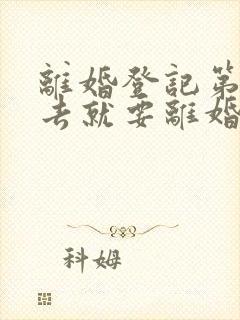 離婚登記第
去就要離婚
科姆